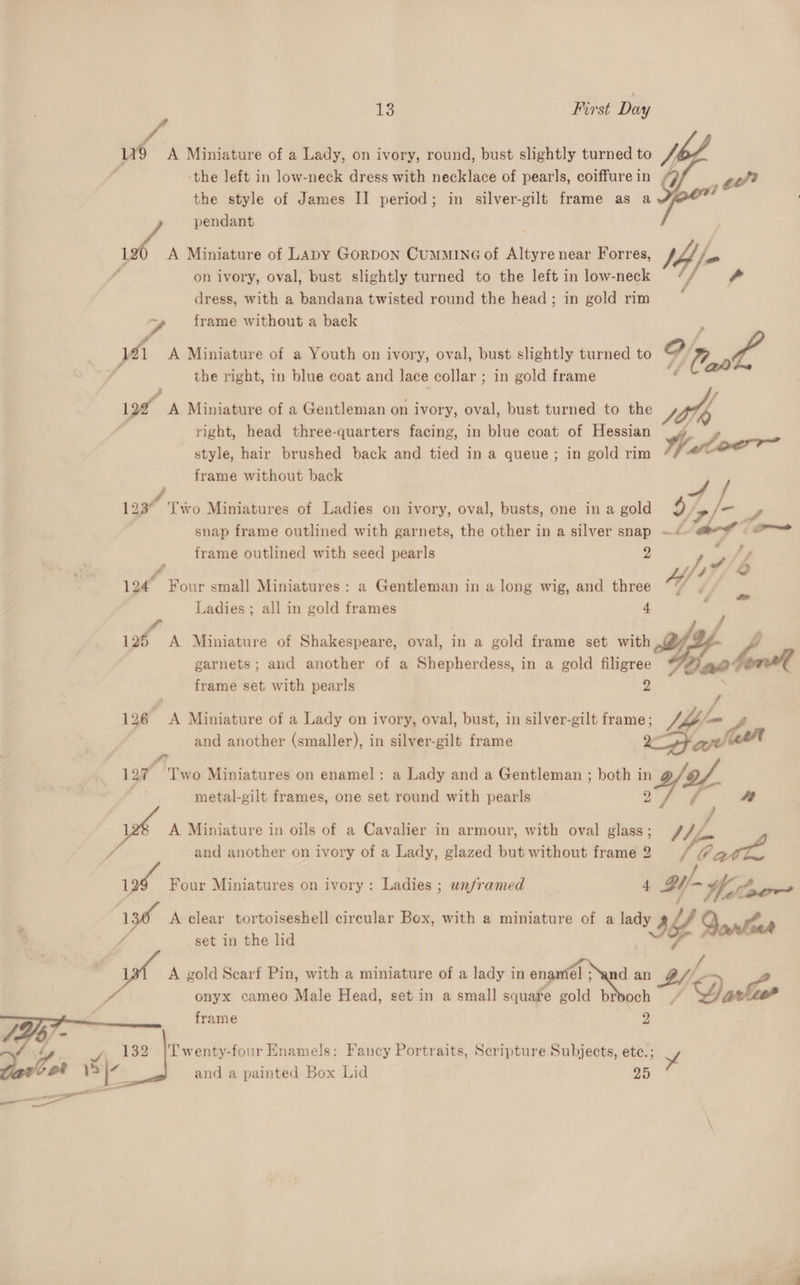 13 First Day
119 A Miniature of a Lady, on ivory, round, bust slightly turned to
the left in low-neck dress with necklace of pearls, coiffure in
the style of James II period; in silver-gilt frame as a
pendant
120 A Miniature of LADY GORDON CUMMING of Altyre near Forres,
on ivory, oval, bust slightly turned to the left in low-neck
dress, with a bandana twisted round the head; in gold rim
frame without a back
121 A Miniature of a Youth on ivory, oval, bust slightly turned to
the right, in blue coat and lace collar; in gold frame
122 A Miniature of a Gentleman on ivory, oval, bust turned to the
right, head three-quarters facing, in blue coat of Hessian
style, hair brushed back and tied in a queue; in gold rim
frame without back
123 Two Miniatures of Ladies on ivory, oval, busts, one in a gold
snap frame outlined with garnets, the other in a silver snap
frame outlined with seed pearls 2
124 Four small Miniatures: a Gentleman in a long wig, and three
Ladies; all in gold frames 4
125 A Miniature of Shakespeare, oval, in a gold frame set with
garnets; and another of a Shepherdess, in a gold filigree
frame set with pearls 2
126 A Miniature of a Lady on ivory, oval, bust, in silver-gilt frame;
and another (smaller), in silver-gilt frame 2
127 Two Miniatures on enamel: a Lady and a Gentleman; both in
metal-gilt frames, one set round with pearls 2
128 A Miniature in oils of a Cavalier in armour, with oval glass;
and another on ivory of a Lady, glazed but without frame 2
129 Four Miniatures on ivory: Ladies; unframed 4
130 A clear tortoiseshell circular Box, with a miniature of a lady
set in the lid
131 A gold Scarf Pin, with a miniature of a lady in enamel; and an
onyx cameo Male Head, set in a small square gold brooch
frame 2
132 Twenty-four Enamels: Fancy Portraits, Scripture Subjects, etc.;
and a painted Box Lid 25